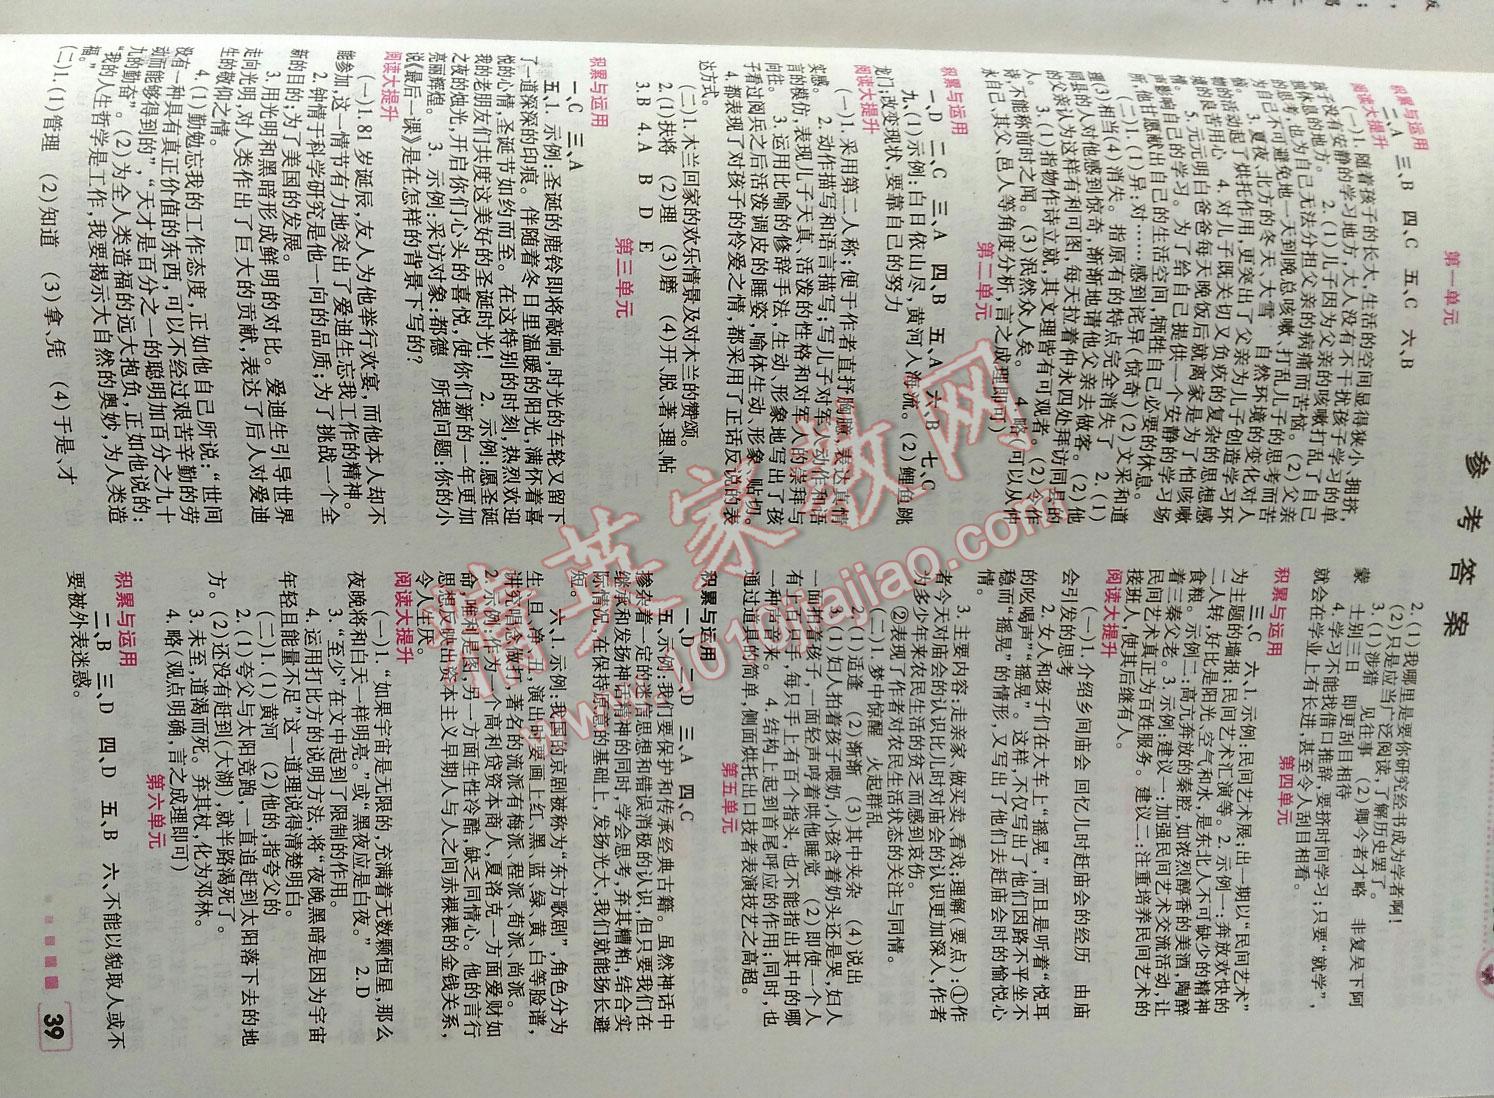 参考答案
第一单元
积累与运用
二、A 三、B 四、C 五、C 六、B
阅读大提升
(一)1. 随着孩子的长大,生活的空间显得狭小、拥挤,
孩子没有安静的学习地方,大人没有不干扰孩子学习的单
独休息的地方。 2. (1)儿子因为父亲的咳嗽打乱了自己
的思考,也为自己无法分担父亲的病痛而苦恼。(2)父亲
为自己不可避免地一天到晚总咳嗽、打乱儿子的思考而苦
恼。 3. 夏夜、北方的冬天、大雪 自然环境的变化对人
物的活动起了烘托作用,更突出了父亲为儿子创造学习环
境的良苦用心 4. 对儿子既关切又负疚的复杂的思想感
情。 5. 元元明白爸爸每天晚饭后就离家是为了怕咳嗽
声影响自己的学习。为了给自己提供一个安静的学习场
所,他甘愿献出自己的生活空间,牺牲自己必要的休息。
(二)1. (1)异:对……感到诧异(惊奇)(2)文采和道
理(3)相当(4)消失。指原有的特点完全消失了 2. (1)
同县的人对他感到惊奇,渐渐地请他父亲去做客。(2)他
的父亲认为这样有利可图,每天拉着仲永四处拜访同县的
人。 3. (1)指物作诗立就,其文理皆有可观者。(2)令作
诗,不能称前时之闻。(3)泯然众人矣。 4. 略(可以从仲
永自己,其父,邑人等角度分析,言之成理即可)
第二单元
积累与运用
一、D 二、C 三、A 四、B 五、A 六、B 七、C
九、(1)示例:白日依山尽,黄河入海流。(2)鲤鱼跳
龙门;改变现状要靠自己的努力
阅读大提升
(一)1. 采用第二人称,便于作者直抒胸臆,表达真情
实感。 2. 动作描写和语言描写;写儿子对军人动作和语
言的模仿,表现儿子天真、活泼的性格和对军人的崇拜与
向往。 3. 运用比喻的修辞手法,生动、形象地写出了孩
子看过阅兵之后活泼调皮的睡姿,喻体生动、形象、贴切。
4. 都表现了对孩子的怜爱之情,都采用了正话反说的表
达方式。
(二)1. 木兰回家的欢乐情景及对木兰的赞颂。
2. (1)扶将 (2)理 (3)磨 (4)开、脱、著、理、帖
3. B 4. A B D E
第三单元
积累与运用
一、C 三、A
五、1. 示例:圣诞的鹿铃即将敲响,时光的车轮又留下
了一道深深的印痕。伴随着冬日里温暖的阳光,满怀着喜
悦的心情,圣诞节如约而至。在这特别的时刻,热烈欢迎
我的老朋友们共度这美好的圣诞时光! 2. 示例:愿圣诞
之夜的烛光,开启你们心头的喜悦,使你们新的一年更加
亮丽辉煌。 3. 示例:采访对象:都德 所提问题:你的小
说《最后一课》是在怎样的背景下写的?
阅读大提升
(一)1. 81 岁诞辰,友人为他举行欢宴,而他本人却不
能参加,这一情节有力地突出了爱迪生忘我工作的精神。
2. 钟情于科学研究是他一向的品质;为了挑战一个全
新的目的;为了美国的发展。
3. 用光明和黑暗形成鲜明的对比。爱迪生引导世界
走向光明,对人类作出了巨大的贡献,表达了后人对爱迪
生的敬仰之情。
4. (1)勤勉忘我的工作态度,正如他自己所说:“世间
没有一种具有真正价值的东西,可以不经过艰苦辛勤的劳
动而能够得到的”,“天才是百分之一的聪明加百分之九十
九的勤奋”。(2)为全人类造福的远大抱负,正如他说的:
“我的人生哲学是工作,我要揭示大自然的奥妙,为人类造
福。”
(二)1. (1)管理 (2)知道 (3)拿、凭 (4)于是、才
2. (1)我哪里是要你研究经书成为学者啊!
(2)只是应当广泛阅读,了解历史罢了。
3. (1)涉猎 见往事 (2)卿今者才略 非复吴下阿
蒙 士别三日 即更刮目相待
4. 学习不能找借口推辞,要挤时间学习;只要“就学”,
就会在学业上有长进,甚至令人刮目相看。
第四单元
积累与运用
三、C 六、1. 示例:民间艺术展;出一期以“民间艺术”
为主题的墙报;民间艺术汇演等。2. 示例一:奔放欢快的
二人转,好比是阳光、空气和水,是东北人不可缺少的精神
食粮。示例二:高亢奔放的秦腔,如浓烈醇香的美酒,陶醉
着三秦父老。3. 示例:建议一:加强民间艺术交流活动,让
民间艺术真正为百姓服务。建议二:注重培养民间艺术的
接班人,使其后继有人。
阅读大提升
(一)1. 介绍乡间庙会 回忆儿时赶庙会的经历 由庙
会引发的思考
2. 女人和孩子们在大车上“摇晃”,而且是听着“悦耳
的吆喝声”“摇晃”。这样,不仅写出了他们因路不平坐不
稳而“摇晃”的情形,又写出了他们去赶庙会时的愉悦心
情。
3. 主要内容:走亲家,做买卖,看戏;理解(要点):①作
者今天对庙会的认识比儿时对庙会的认识更加深入,作者
为多少年来农民生活的贫乏而感到哀伤。
②表现了作者对农民生活状态的关注与同情。
(二)1. 梦中惊醒 火起群乱
2. (1)适逢 (2)渐渐 (3)其中夹杂 (4)说出
3. (1)妇人拍着孩子喂奶,小孩含着奶头还是哭,妇人
一面拍着孩子,一面轻声哼着哄他睡觉 (2)即使一个人
有上百只手,每只手上有百个指头,也不能指出其中的哪
一种声音来。 4. 结构上起到首尾呼应的作用;同时,也
通过道具的简单,侧面烘托出口技者表演技艺之高超。
第五单元
积累与运用
一、D 二、D 三、A 四、C
五、示例:我们要保护和传承经典古籍。虽然神话中
掺杂着一定的迷信思想和错误消极的认识,但只要我们在
继承和发扬神话精神的同时,学会思考,弃其糟粕,结合实
际情况,在保持原意的基础上,发扬光大,我们就能扬长避
短。
六、1. 示例:我国的京剧被称为“东方歌剧”,角色分为
生、旦、净、丑,演出时要画上红、黑、蓝、绿、黄、白等脸谱,
讲究唱念做打,著名的流派有梅派、程派、荀派、尚派。
2. 示例:作为一个高利贷资本商人,夏洛克一方面爱财如
命,唯利是图,另一方面生性冷酷,缺乏同情心。他的言行
思想反映出资本主义早期人与人之间赤裸裸的金钱关系,
令人生厌。
阅读大提升
(一)1. “如果宇宙是无限的,充满着无数颗恒星,那么
夜晚将和白天一样明亮。”或“黑夜应是白夜。” 2. D
3. “至少”在文中起到了限制的作用。
4. 运用打比方的说明方法,将“夜晚黑暗是因为宇宙
年轻且能量不足”这一道理说得清楚明白。
(二)1. (1)黄河 (2)他的,指夸父的
2. (1)夸父与太阳竞跑,一直追赶到太阳落下去的地
方。(2)还没有起到(大湖),就半路渴死了。
3. 未至,道渴而死。弃其杖,化为邓林。
4. 略(观点明确,言之成理即可)
第六单元
积累与运用
二、B 三、D 四、D 五、B 六、不能以貌取人或不
要被外表迷惑。
39
精英家教网
www.1010jiajiao.com